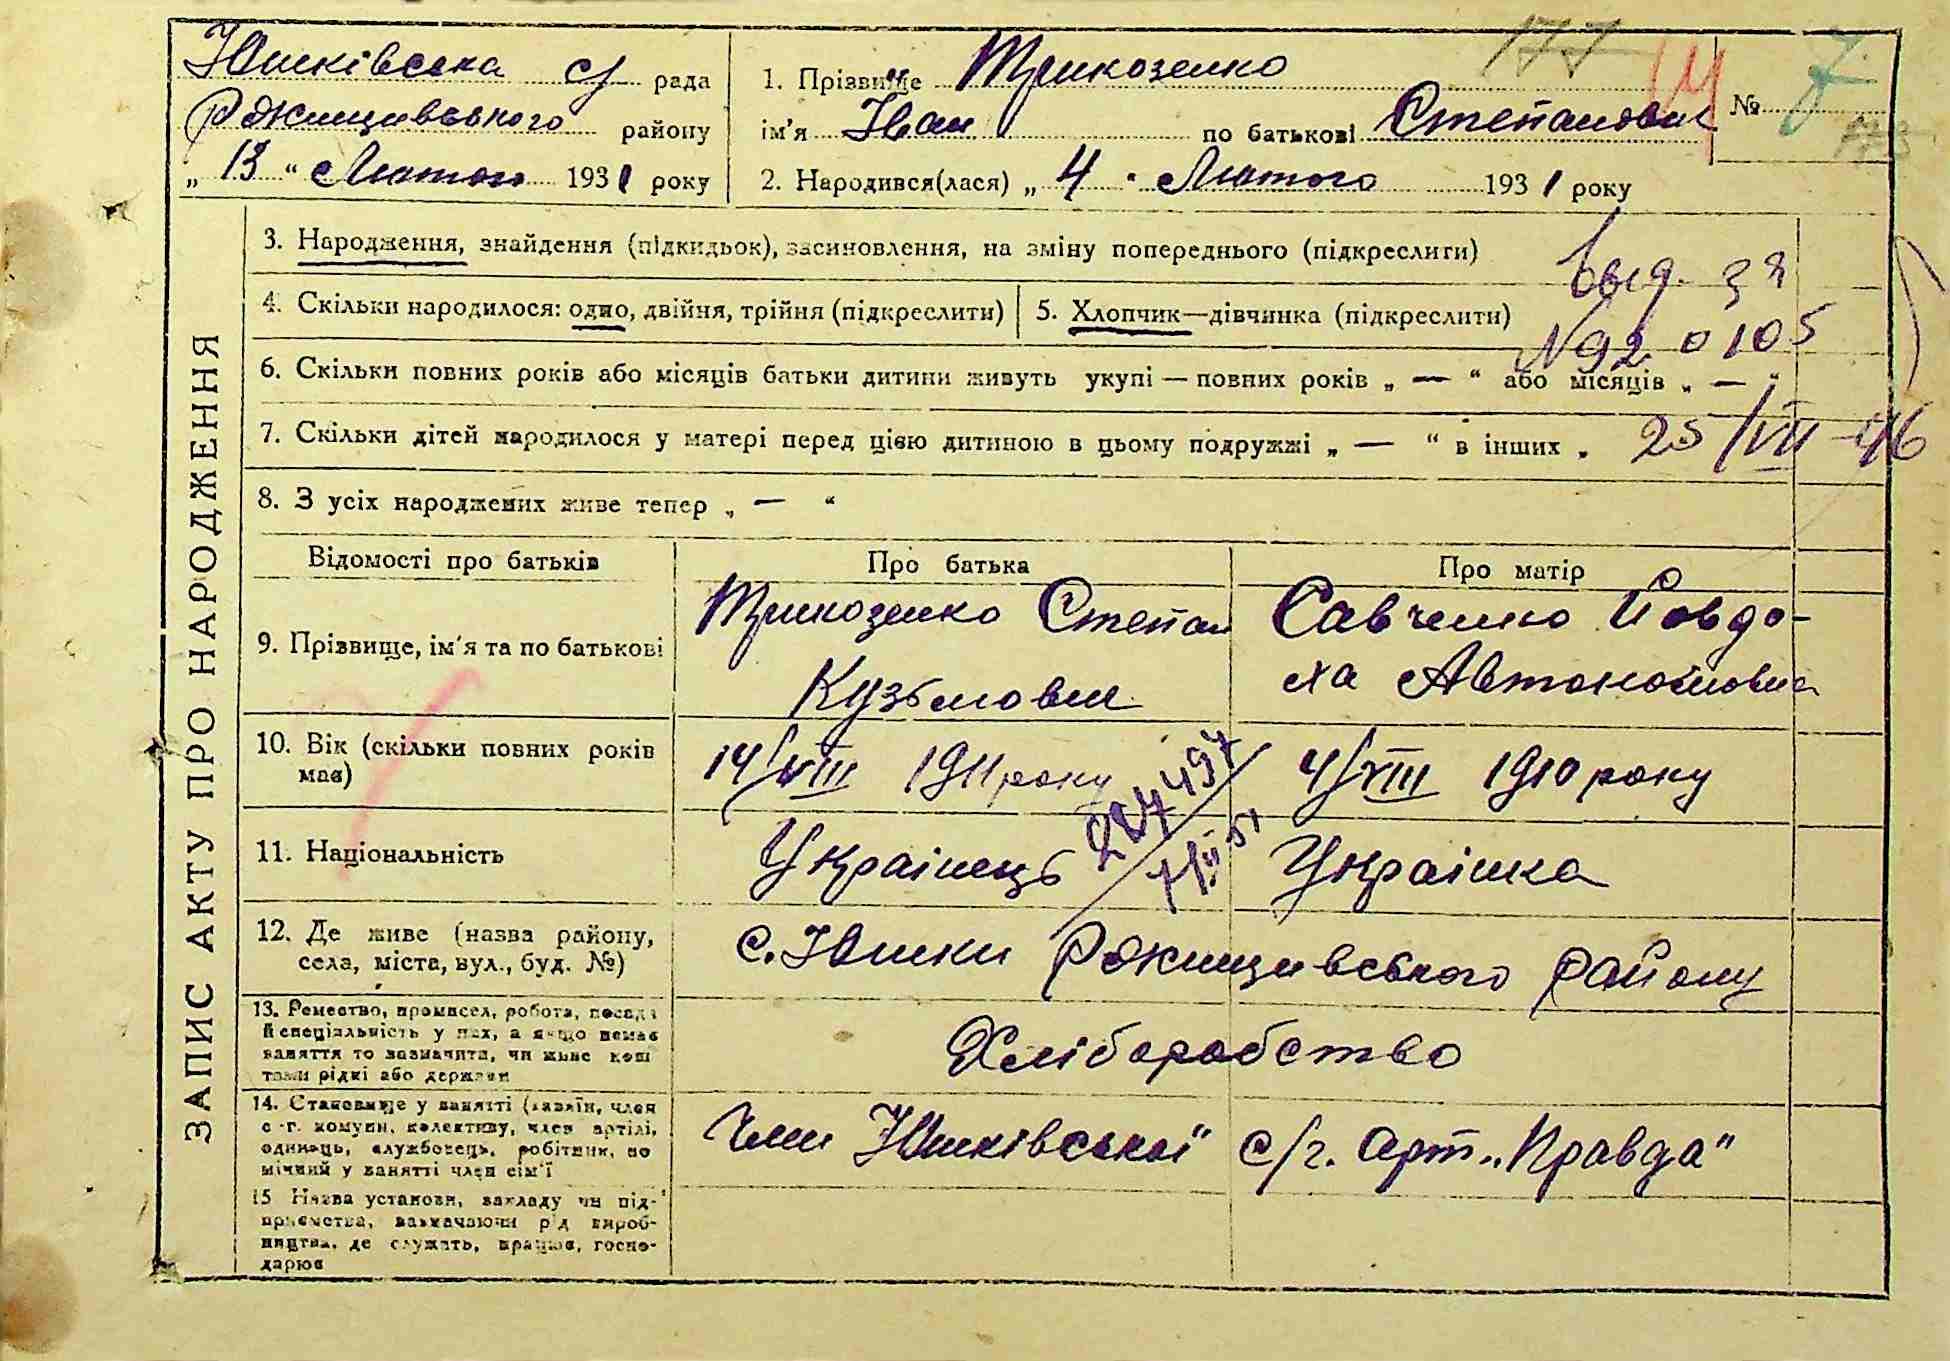 Юшківська с/ рада
Ржищивського району
„ 13 “ Лютого 1931 року
1. Прізвище Трикозенко
ім'я Іван по батькові Степанович
2. Народився(лася) „ 4 " Лютого 1931 року
177
14
№ 7
ЗАПИС АКТУ ПРО НАРОДЖЕННЯ
3. Народження, знайдення (підкидьок), засиновлення, на зміну попереднього (підкреслити)
4. Скільки народилося: одно, двійня, трійня (підкреслити)
5. Хлопчик—дівчинка (підкреслити)
6. Скільки повних років або місяців батьки дитини живуть укупі — повних років „ — “ або місяців „ — “
7. Скільки дітей народилося у матері перед цією дитиною в цьому подружжі „ — “ в інших „
8. З усіх народжених живе тепер „ — “
выд.
№92 0105
25/VII-46
Відомості про батьків
Про батька
Про матір
9. Прізвище, ім'я та по батькові
Трикозенко Степан
Кузьмович
Савченко Йовдо-
ха Автономовна
10. Вік (скільки повних років
має)
14/VIII 1911 року
4/VIII 1910 року
11. Національність
Українець
Українка
12. Де живе (назва району,
села, міста, вул., буд. №)
с. Юшки Ржищивського району
13. Ремество, промисел, робота, посада
й спеціяльність у них, а якщо немає
заняття то зазначити, чи живе кош
тами рідні або держави
Хліборобство
14. Становище у занятті (хазяїн, член
с.-г. комуни, колективу, член артілі,
одинець, службовець, робітник, по
мічний у занятті член сім'ї
Член Юшківської с/г. арт. „Правда"
15 Назва установи, закладу чи під-
приємства, зазначаючи рід вироб-
ництва, де служить, працює, госпо-
дарює